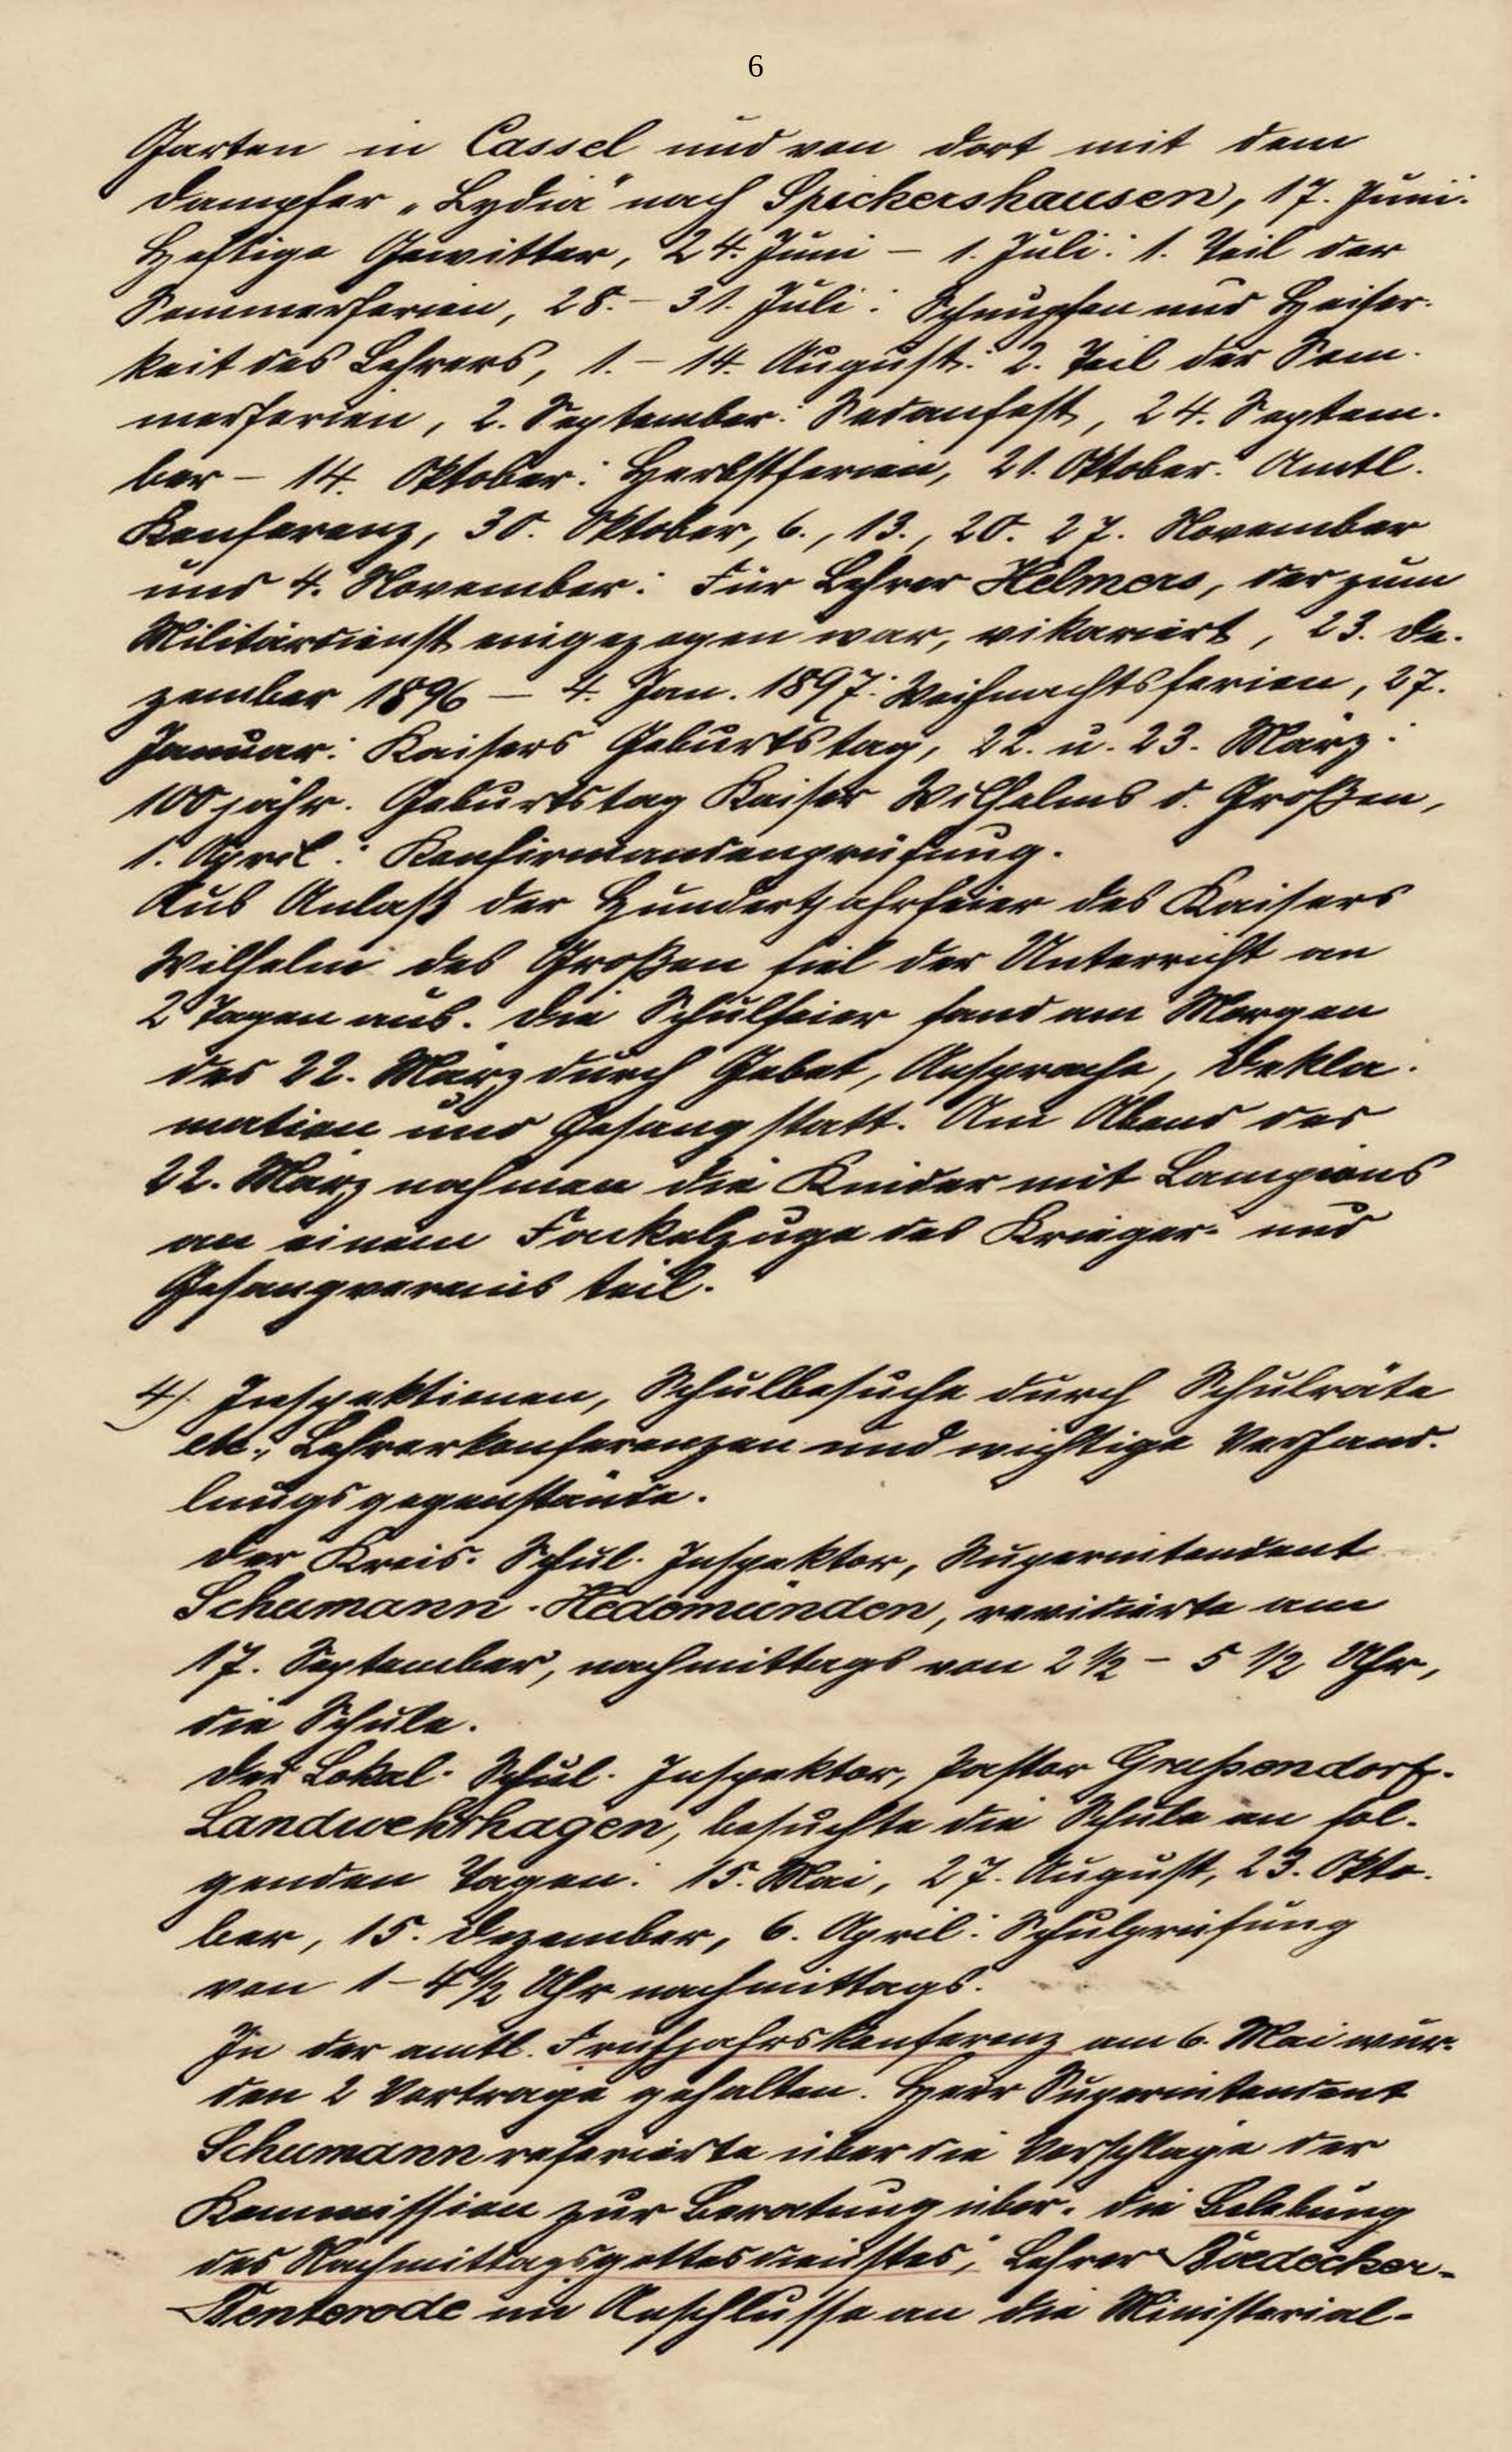 6
Garten in Cassel und von dort mit dem
Dampfer „Lydia" nach Spickershausen, 17. Juni:
Heftige Gewitter, 24. Juni – 1. Juli: 1. Teil der
Sommerferien, 28. – 31. Juli: Schnupfen und Heiser-
keit des Lehrers, 1. – 14. August: 2. Teil der Som-
merferien, 2. September: Sedanfest, 24. Septem-
ber – 14. Oktober: Herbstferien, 21. Oktober: Amtl.
Konferenz, 30. Oktober, 6., 13., 20. 27. November
und 4. November: Für Lehrer Helmers, der zum
Militärdienst eingezogen war, vikariert, 23. De-
zember 1896 – 4. Jan. 1897: Weihnachtsferien, 27.
Januar: Kaisers Geburtstag, 22. u. 23. März:
100jähr. Geburtstag Kaiser Wilhelms d. Großen,
1. April: Konfirmandenprüfung.
Aus Anlaß der Hundertjahrfeier des Kaisers
Wilhelm des Großen fiel der Unterricht an
2 Tagen aus. Die Schulfeier fand am Morgen
des 22. März durch Gebet, Ansprache, Dekla-
mation und Gesang statt. Am Abend des
22. März nahmen die Kinder mit Lampions
an einem Fackelzuge des Krieger- und
Gesangvereins teil.
4). Inspektionen, Schulbesuche durch Schulräte
etc., Lehrerkonferenzen und wichtige Verhand-
lungsgegenstände.
Der Kreis-Schul-Inspektor, Superintendent
Schumann-Hedemünden, revidierte am
17. September, nachmittags von 2 ½ – 5 ½ Uhr,
die Schule.
Der Lokal-Schul-Inspektor, Pastor Grußendorf-
Landwehrhagen, besuchte die Schule an fol-
genden Tagen: 15. Mai, 27. August, 23. Okto-
ber, 15. Dezember, 6. April: Schulprüfung
von 1 – 4 ½ Uhr nachmittags.
In der amtl. Frühjahrskonferenz am 6. Mai wur-
den 2 Vorträge gehalten. Herr Superintendent
Schumann referierte über die Vorschläge der
Kommission zur Beratung über: die Belebung
des Nachmittagsgottesdienstes; Lehrer Boedecker-
Benterode im Anschlusse an die Ministerial-